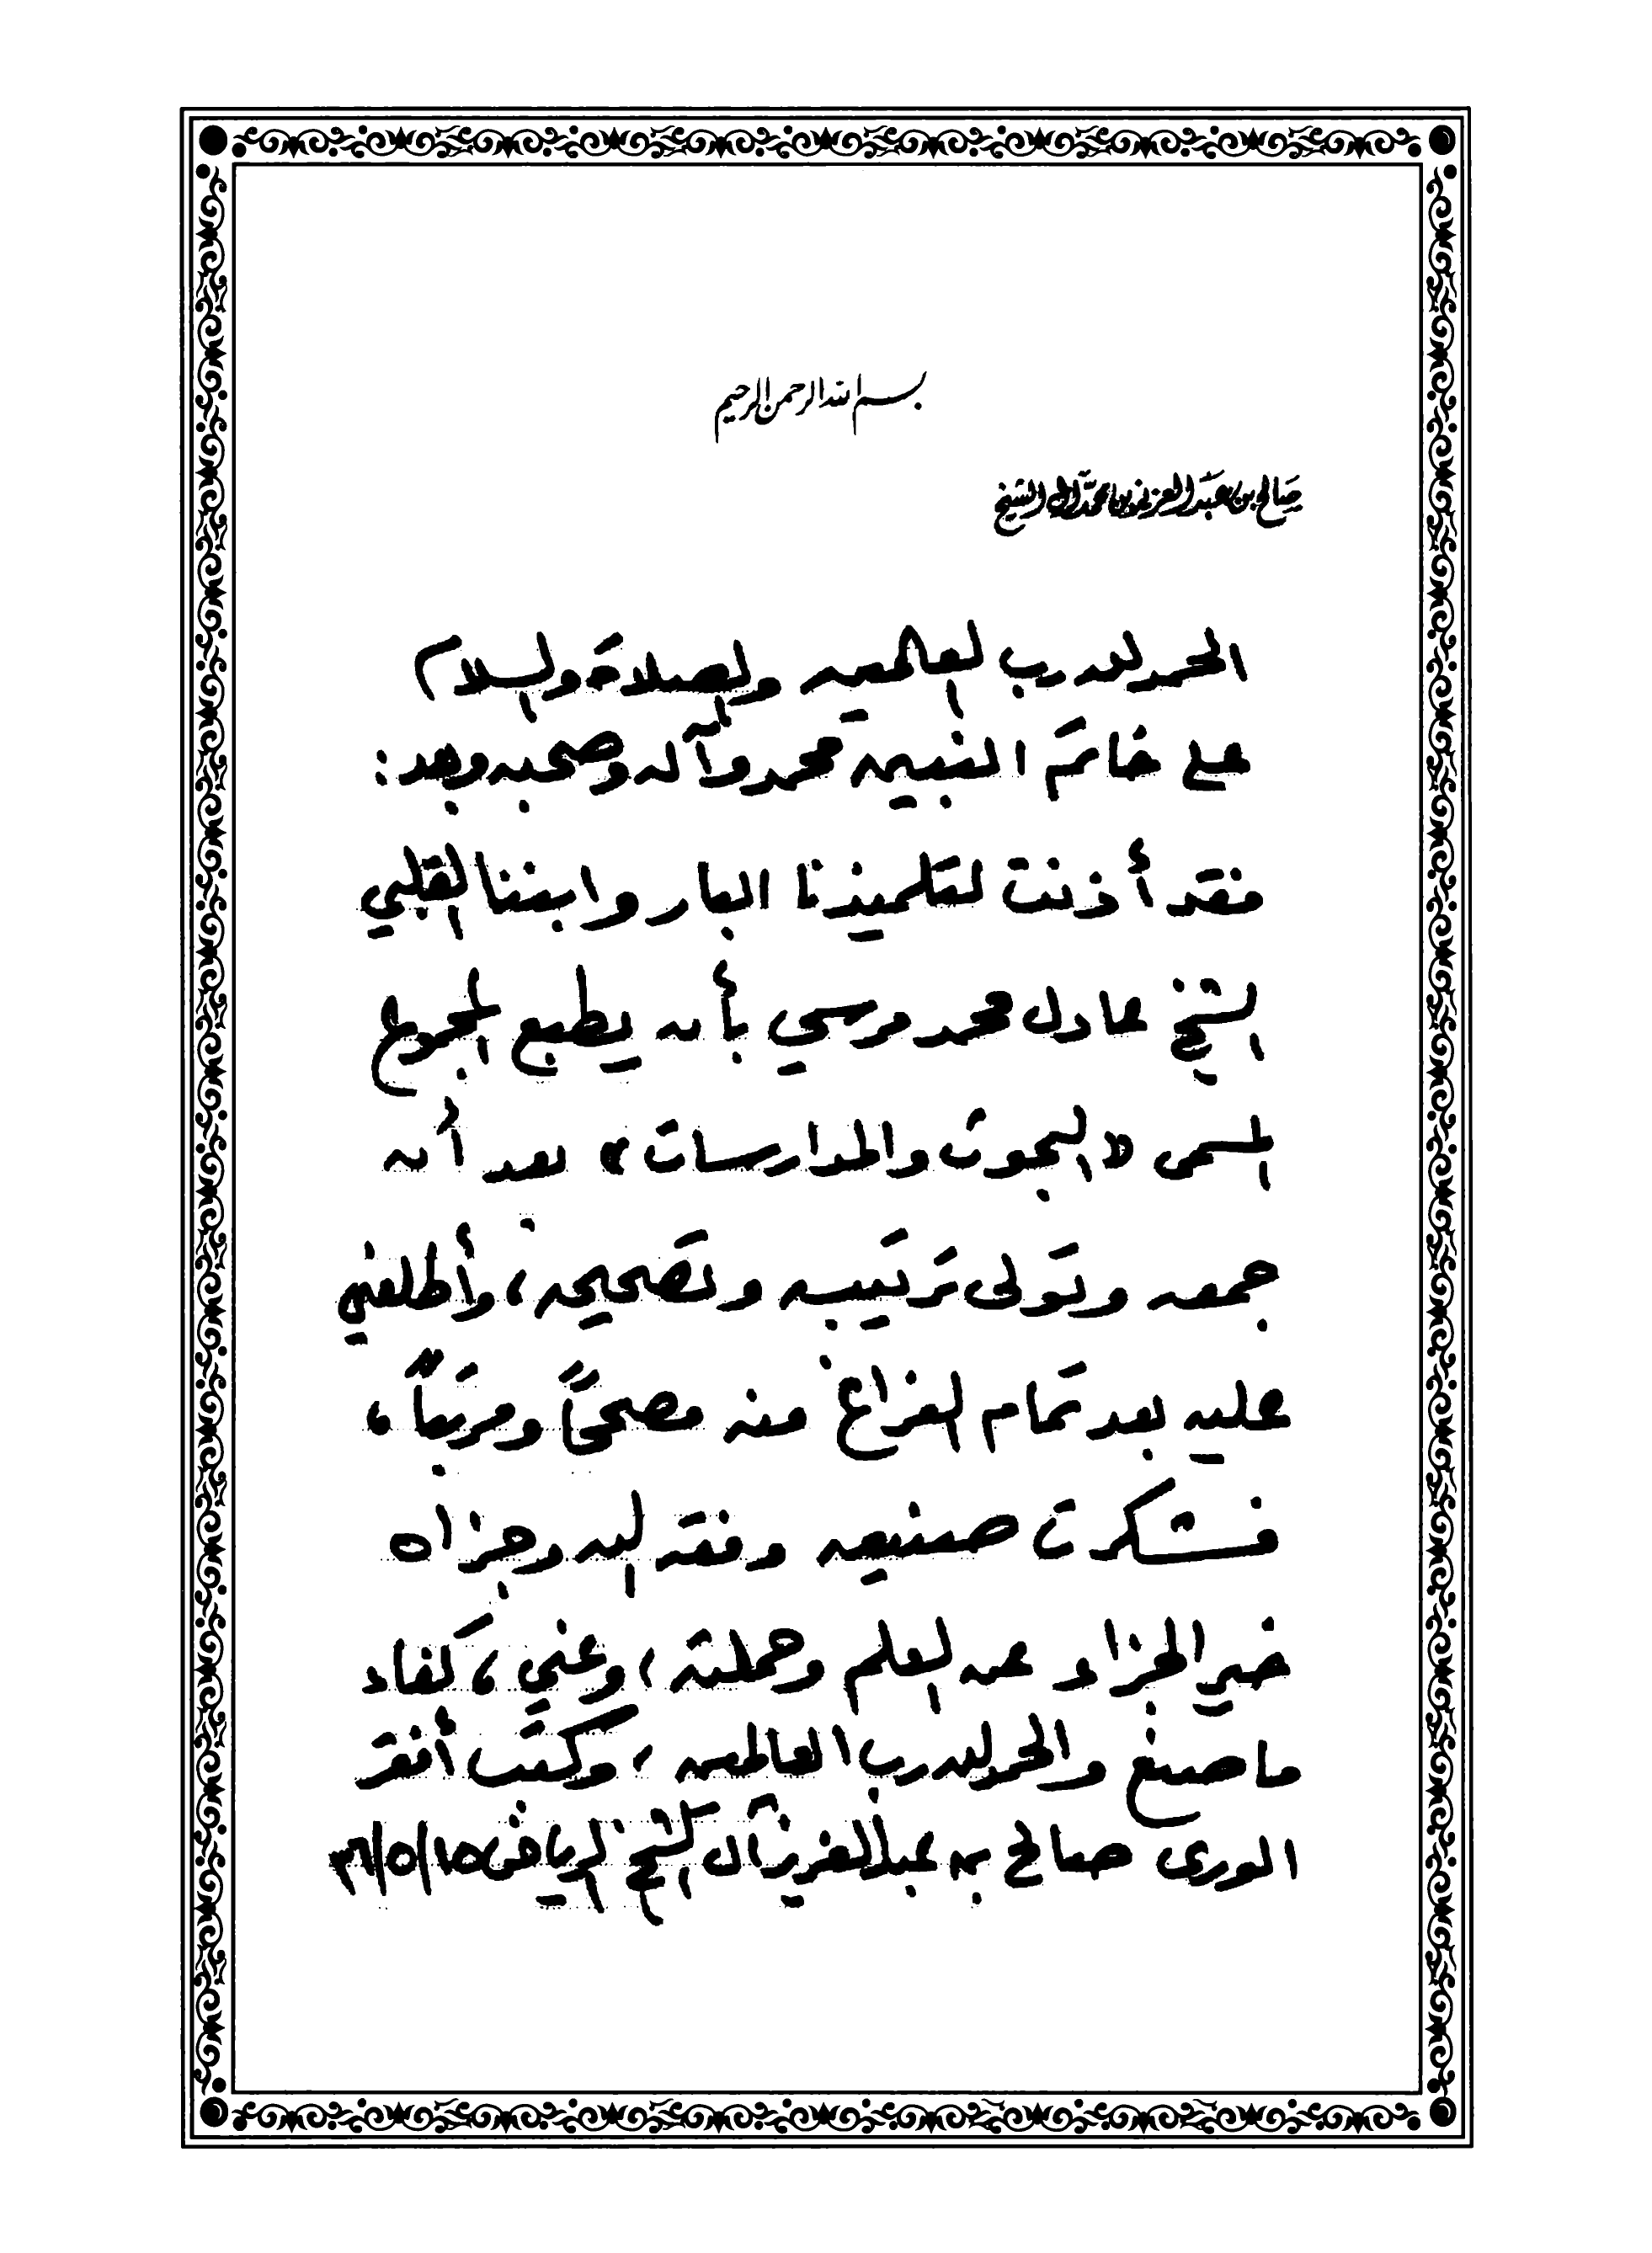 بسم الله الرحمن الرحيم
صالح بن عبد العزيز بن محمد آل الشيخ
الحمد لله رب العالمين والصلاة والسلام
على خاتم النبيين محمد وآله وصحبه وبعد:
فقد أذنت لتلميذنا البار وابننا القلبي
الشيخ عادل محمد مرسي بأن يطبع المجموع
المسمى «البحوث والمدارسات» بعد أن
جمعه وتولى ترتيبه وتصحيحه، وأطلعني
عليه بعد تمام الفراغ منه مصححاً ومرتباً،
فشكرت صنيعه وفقه الله وجزاه
خير الجزاء عن العلم وحملته، وعني، كفاء
ما صنع والحمد لله رب العالمين، وكتب أفقر
الورى صالح بن عبد العزيز آل الشيخ الرياض ٣٦/٥/١٥